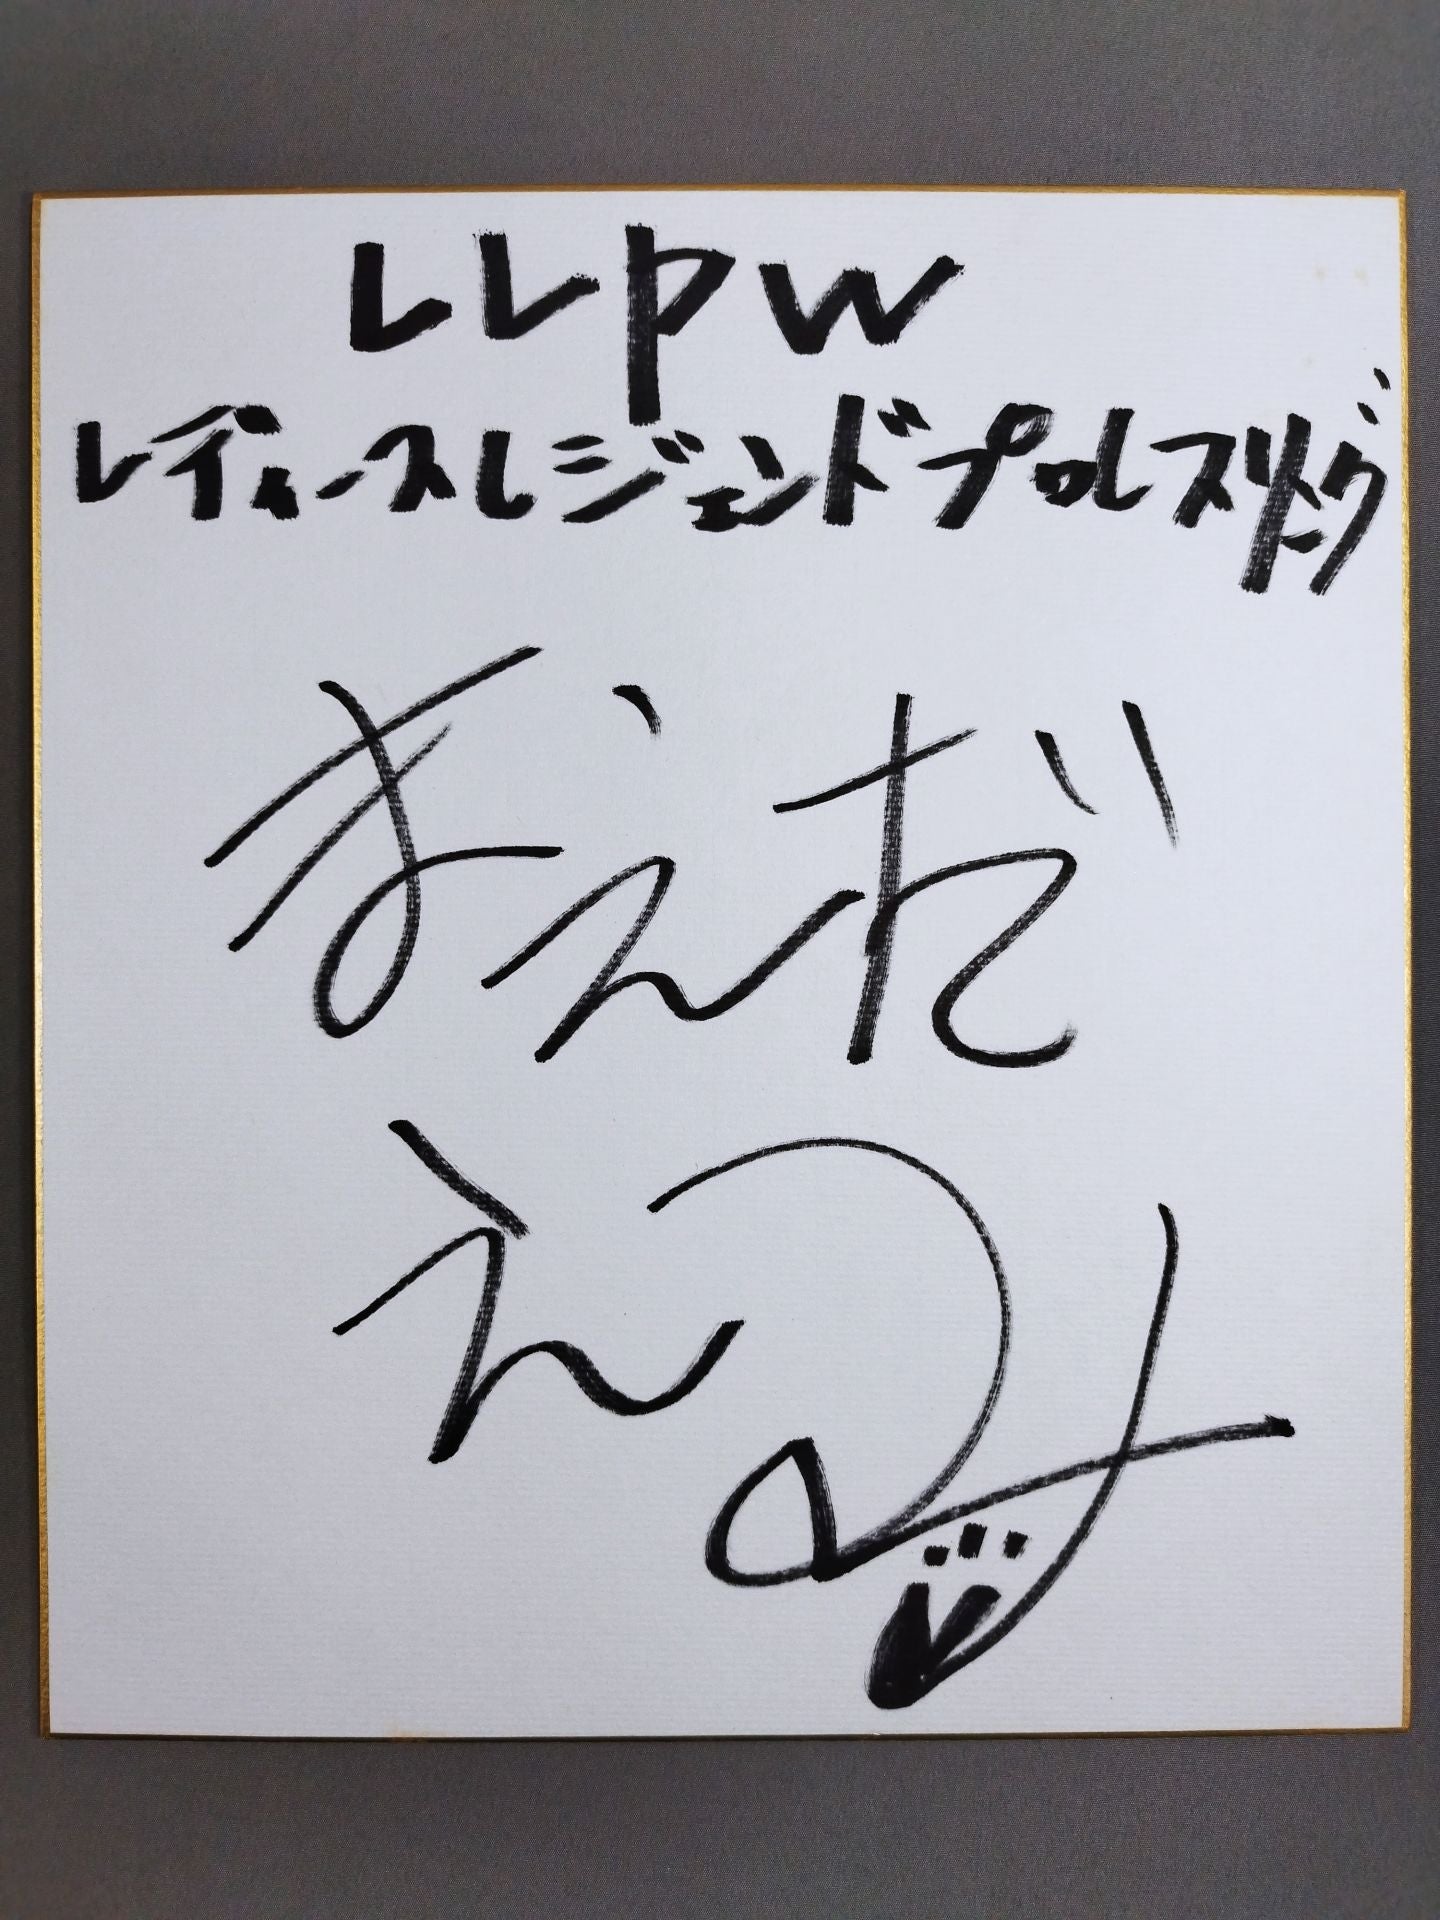 LLPW
レディースレジェンドプロレスリング
まえだ
えみ